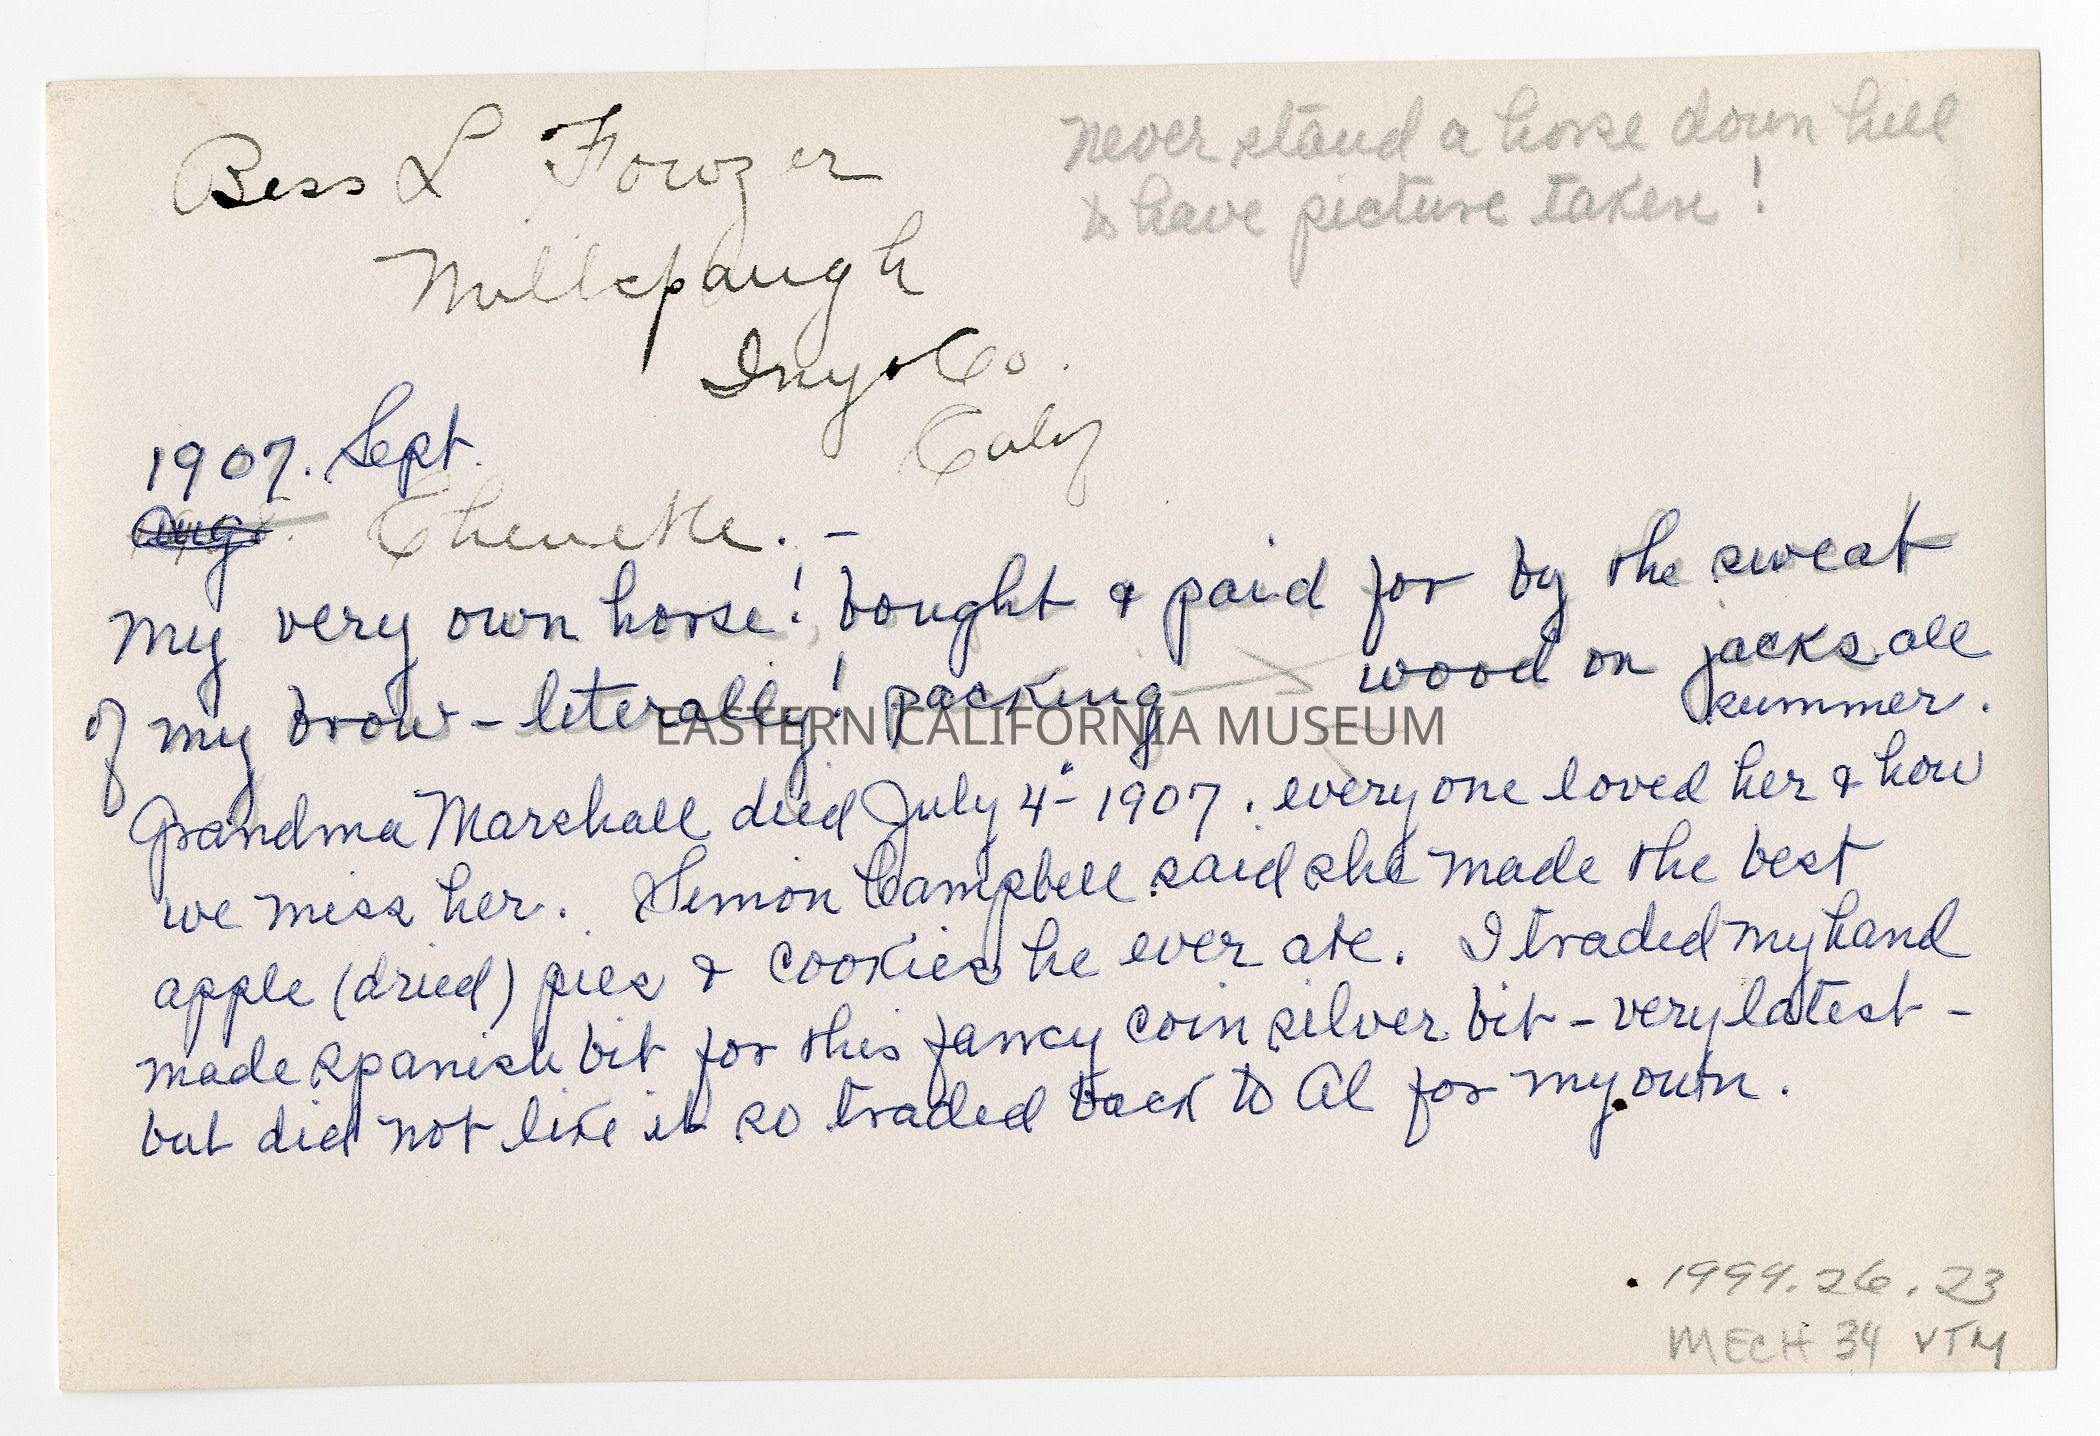 Bess L
Millspaugh
Inyo Co.
Calif
never stand a horse down hill
to have picture taken!
1907. Sept.
Aug.
my very own horse! bought & paid for by the sweat
of my brow - literally! packing wood on jacks all
summer.
Grandma Marshall died July 4 - 1907. everyone loved her & how
we miss her. Simon Campbell said she made the best
apple (dried) pies & cookies he ever ate. I traded my hand
made spanish bit for this fancy coin silver bit - very latest -
but did not like it so traded back to Al for my own.
EASTERN CALIFORNIA MUSEUM
1999.26.23
MECH 34 VTM